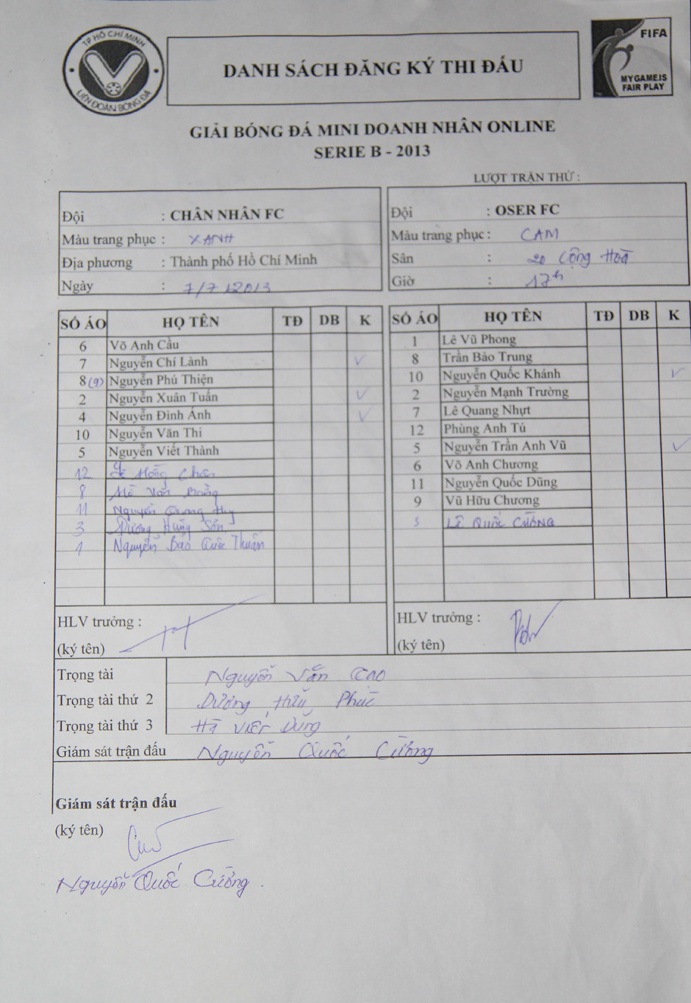 TP HỒ CHÍ MINH
LIÊN ĐOÀN BÓNG ĐÁ
DANH SÁCH ĐĂNG KÝ THI ĐẤU
FIFA
MY GAME IS
FAIR PLAY
GIẢI BÓNG ĐÁ MINI DOANH NHÂN ONLINE
SERIE B - 2013
LƯỢT TRẬN THỨ :
Đội : CHÂN NHÂN FC
Màu trang phục : XANH
Địa phương : Thành phố Hồ Chí Minh
Ngày : 7/7/2013
Đội : OSER FC
Màu trang phục : CAM
Sân : 20 Cộng Hoà
Giờ : 17h
SỐ ÁO HỌ TÊN TĐ DB K
6 Võ Anh Cầu
7 Nguyễn Chí Lành ✓
8(9) Nguyễn Phú Thiện
2 Nguyễn Xuân Tuấn ✓
4 Nguyễn Đình Ánh ✓
10 Nguyễn Văn Thi
5 Nguyễn Viết Thành
12 Hồng Chân
8 Văn
11 Nguyễn Quang
3 Dương Hùng Sơn
1 Nguyễn Bảo Quốc Thuận
SỐ ÁO HỌ TÊN TĐ DB K
1 Lê Vũ Phong
8 Trần Bảo Trung
10 Nguyễn Quốc Khánh ✓
2 Nguyễn Mạnh Trường
7 Lê Quang Nhựt
12 Phùng Anh Tú
5 Nguyễn Trần Anh Vũ ✓
6 Võ Anh Chương
11 Nguyễn Quốc Dũng
9 Vũ Hữu Chương
LÊ QUỐC CƯỜNG
HLV trưởng :
(ký tên)
HLV trưởng :
(ký tên)
Trọng tài Nguyễn Văn Cao
Trọng tài thứ 2 Dương Hữu Phúc
Trọng tài thứ 3 Hà Viết Dũng
Giám sát trận đấu Nguyễn Quốc Cường
Giám sát trận đấu
(ký tên)
Nguyễn Quốc Cường.